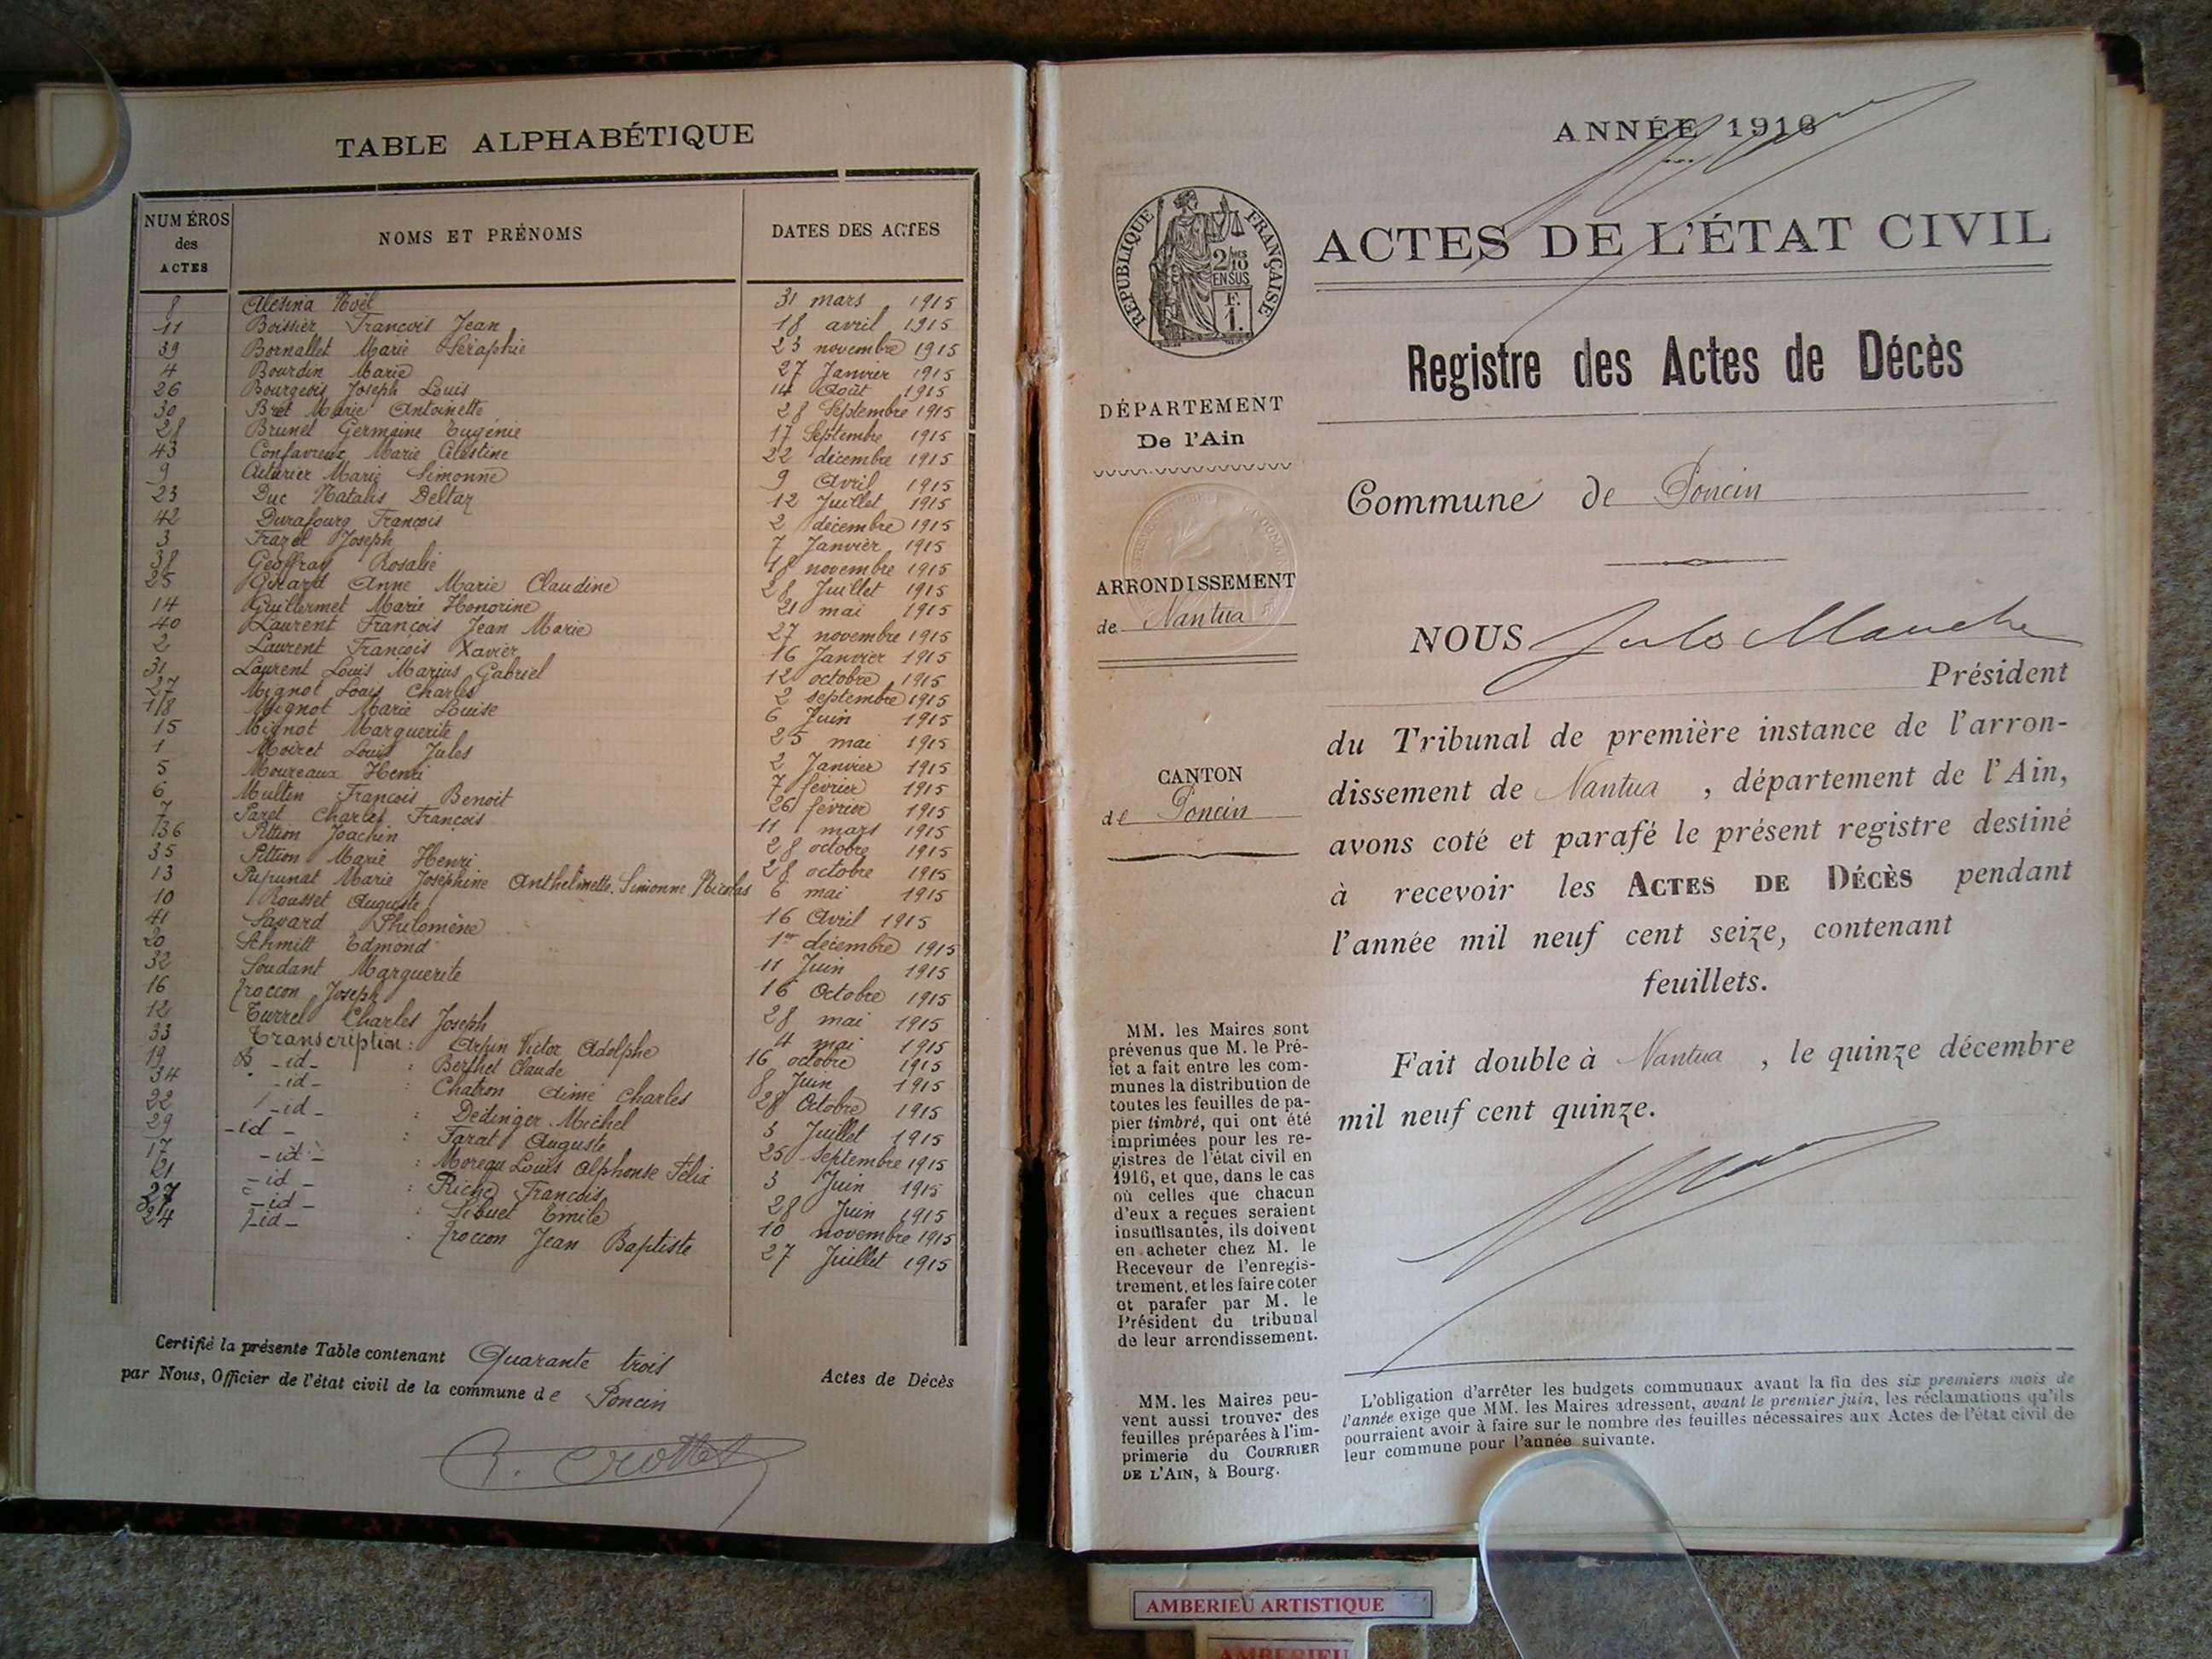 TABLE ALPHABÉTIQUE
NUMÉROS des ACTES NOMS ET PRÉNOMS DATES DES ACTES
8 Alesina Noël 31 mars 1915
11 Boissier François Jean 18 avril 1915
39 Bornallet Marie Séraphie 23 novembre 1915
4 Bourdin Marie 27 Janvier 1915
26 Bourgeois Joseph Louis 14 Août 1915
30 Bret Marie Antoinette 28 Septembre 1915
28 Brunet Germaine Eugénie 17 Septembre 1915
43 Confavreux Marie Célestine 22 décembre 1915
9 Marie Simonne 9 Avril 1915
23 Duc Natalis 12 Juillet 1915
42 Durafourg François 2 décembre 1915
3 Frazel Joseph 7 Janvier 1915
38 Geoffray Rosalie 18 novembre 1915
25 Girard Anne Marie Claudine 28 Juillet 1915
14 Guillermet Marie Honorine 21 mai 1915
40 Laurent François Jean Marie 27 novembre 1915
2 Laurent François Xavier 16 Janvier 1915
31 Laurent Louis Marius Gabriel 12 octobre 1915
27 Mignot Louis Charles 2 septembre 1915
18 Mignot Marie Louise 6 Juin 1915
15 Mignot Marguerite 25 mai 1915
1 Moiret Louis Jules 2 Janvier 1915
5 Moureaux Henri 7 février 1915
6 Multin François Benoit 26 février 1915
7 Paret Charles François 11 mars 1915
36 Pittion Joachin 28 octobre 1915
35 Pittion Marie Henri 28 octobre 1915
13 Pupunat Marie Joséphine Anthelmette Simonne Nicolas 6 mai 1915
10 Rousset Auguste 16 Avril 1915
41 Savard Philomène 1er décembre 1915
20 Schmitt Edmond 11 Juin 1915
32 Soudant Marguerite 16 Octobre 1915
16 Troccon Joseph 28 mai 1915
12 Turrel Charles Joseph 4 mai 1915
33 Transcription : Victor Adolphe 16 octobre 1915
19 -id- : Berthet Claude 8 Juin 1915
34 -id- : Chatron Aimé Charles 28 Octobre 1915
22 -id- : Dedinger Michel 3 Juillet 1915
29 -id- : Farat Auguste 25 Septembre 1915
17 -id- : Moreau Louis Alphonse Félix 3 Juin 1915
21 -id- : Riche François 28 Juin 1915
37 -id- : Sibuet Emile 10 novembre 1915
24 -id- : Troccon Jean Baptiste 27 Juillet 1915
Certifié la présente Table contenant Quarante trois Actes de Décès
par Nous, Officier de l'état civil de la commune de Poncin
Crottet
ANNÉE 1916
RÉPUBLIQUE FRANÇAISE
2/10 EN SUS
F. 1.
ACTES DE L'ÉTAT CIVIL
Registre des Actes de Décès
DÉPARTEMENT
De l'Ain
Commune de Poncin
ARRONDISSEMENT
de Nantua
NOUS Jules Mauche
Président
du Tribunal de première instance de l'arron-
dissement de Nantua , département de l'Ain,
avons coté et parafé le présent registre destiné
à recevoir les ACTES DE DÉCÈS pendant
l'année mil neuf cent seize, contenant
feuillets.
CANTON
de Poncin
Fait double à Nantua , le quinze décembre
mil neuf cent quinze.
MM. les Maires sont
prévenus que M. le Pré-
fet a fait entre les com-
munes la distribution de
toutes les feuilles de pa-
pier timbré, qui ont été
imprimées pour les re-
gistres de l'état civil en
1916, et que, dans le cas
où celles que chacun
d'eux a reçues seraient
insuffisantes, ils doivent
en acheter chez M. le
Receveur de l'enregis-
trement, et les faire coter
et parafer par M. le
Président du tribunal
de leur arrondissement.
MM. les Maires peu-
vent aussi trouver des
feuilles préparées à l'im-
primerie du COURRIER
DE L'AIN, à Bourg.
L'obligation d'arrêter les budgets communaux avant la fin des six premiers mois de
l'année exige que MM. les Maires adressent, avant le premier juin, les réclamations qu'ils
pourraient avoir à faire sur le nombre des feuilles nécessaires aux Actes de l'état civil de
leur commune pour l'année suivante.
AMBERIEU ARTISTIQUE
AMBERIEU